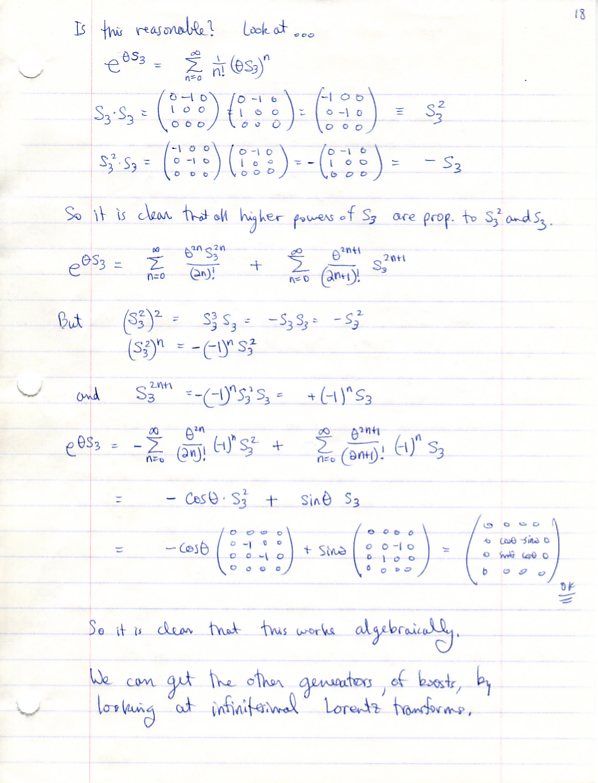 18
Is this reasonable? Look at ...
e^{θS₃} = Σ_{n=0}^{∞} 1/n! (θS₃)ⁿ
S₃·S₃ = (0 -1 0 / 1 0 0 / 0 0 0) (0 -1 0 / 1 0 0 / 0 0 0) = (-1 0 0 / 0 -1 0 / 0 0 0) ≡ S₃²
S₃²·S₃ = (-1 0 0 / 0 -1 0 / 0 0 0) (0 -1 0 / 1 0 0 / 0 0 0) = -(0 -1 0 / 1 0 0 / 0 0 0) = -S₃
So it is clear that all higher powers of S₃ are prop. to S₃² and S₃.
e^{θS₃} = Σ_{n=0}^{∞} θ^{2n} S₃^{2n}/(2n)! + Σ_{n=0}^{∞} θ^{2n+1}/(2n+1)! S₃^{2n+1}
But (S₃²)² = S₃³ S₃ = -S₃ S₃ = -S₃²
(S₃²)ⁿ = -(-1)ⁿ S₃²
and S₃^{2n+1} = -(-1)ⁿ S₃² S₃ = +(-1)ⁿ S₃
e^{θS₃} = -Σ_{n=0}^{∞} θ^{2n}/(2n)! (-1)ⁿ S₃² + Σ_{n=0}^{∞} θ^{2n+1}/(2n+1)! (-1)ⁿ S₃
= -cosθ·S₃² + sinθ S₃
= -cosθ (0 0 0 0 / 0 -1 0 0 / 0 0 -1 0 / 0 0 0 0) + sinθ (0 0 0 0 / 0 0 -1 0 / 0 1 0 0 / 0 0 0 0) = (0 0 0 0 / 0 cosθ -sinθ 0 / 0 sinθ cosθ 0 / 0 0 0 0)
OK
So it is clear that this works algebraically.
We can get the other generators, of boosts, by
looking at infinitesimal Lorentz transforms.